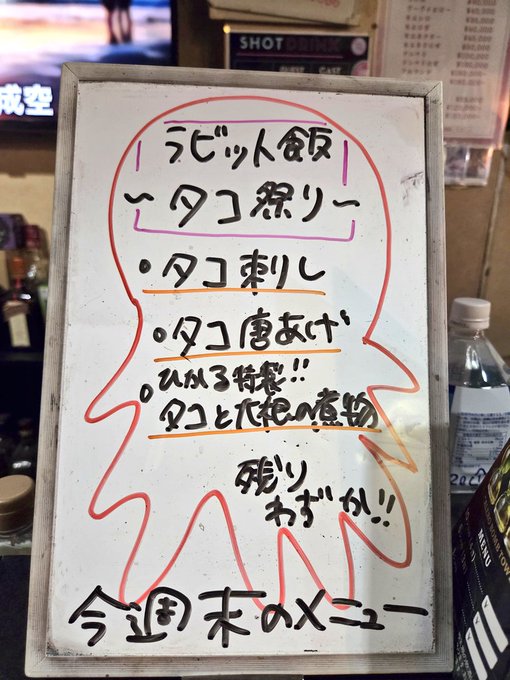 成空
SHOT DRINK
ラビット飯
〜タコ祭り〜
・タコ刺し
・タコ唐あげ
ひかる特製!!
・タコと大根の煮物
残り
わずか!!
今週末のメニュー
MENU